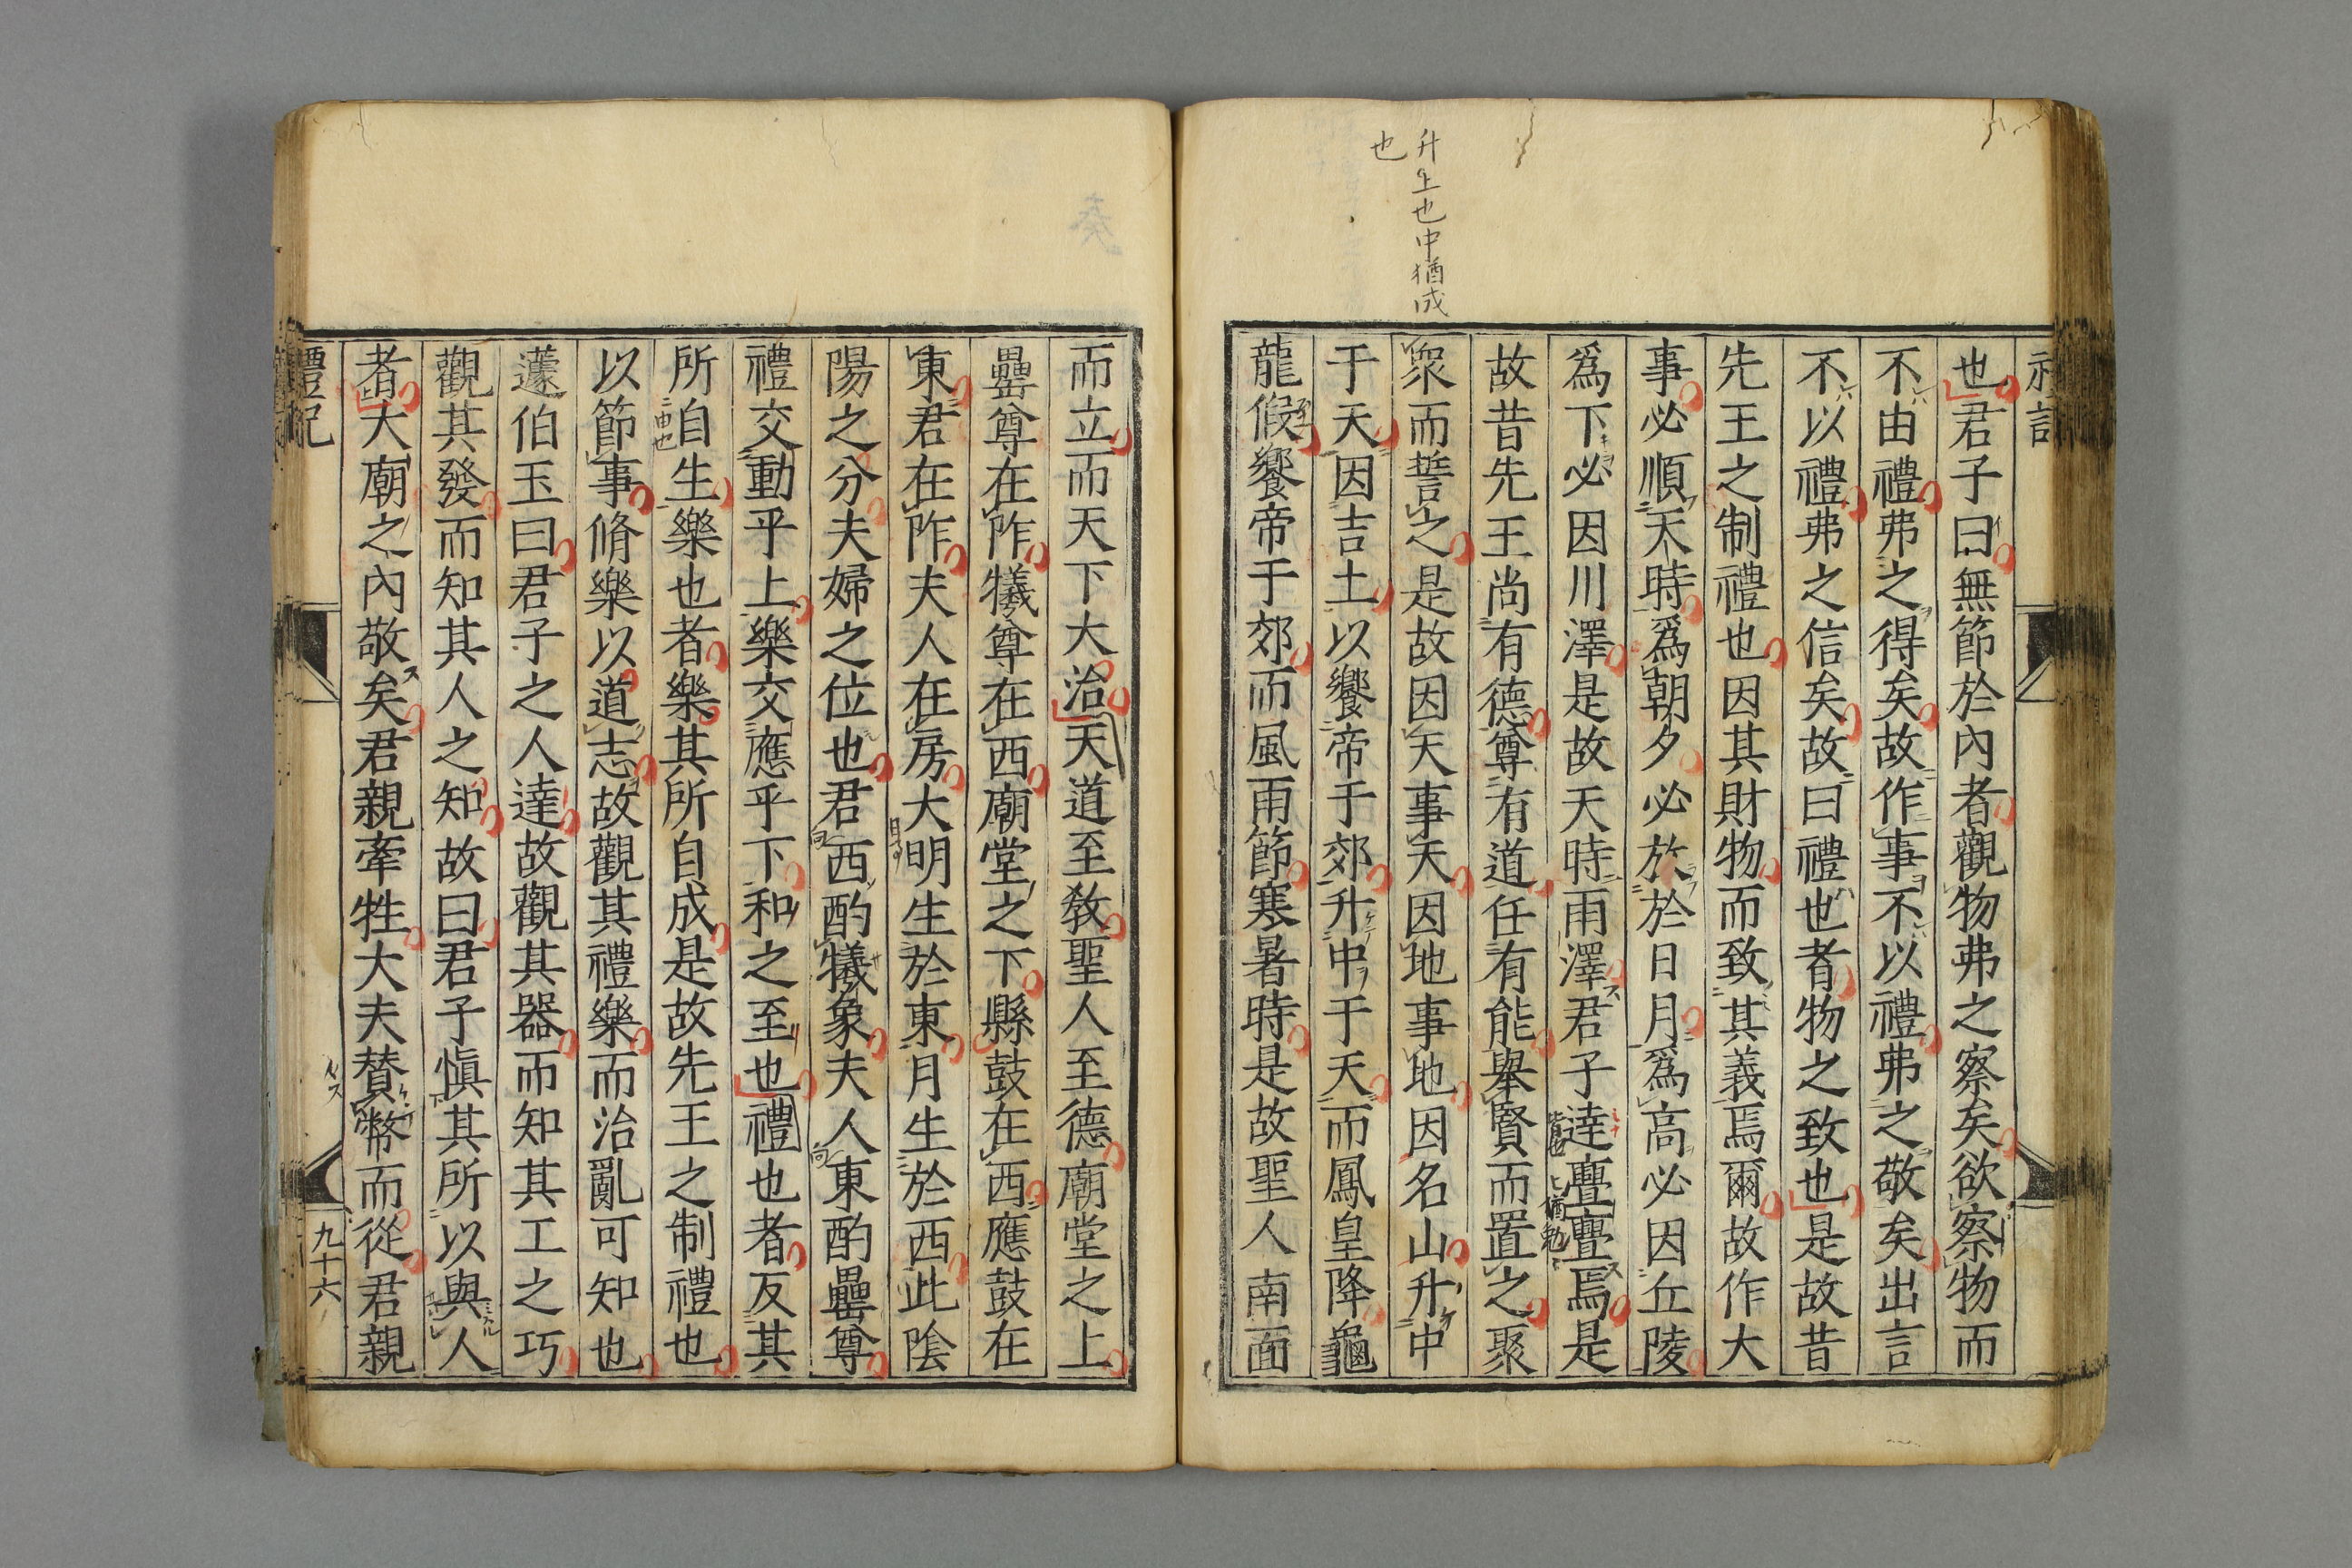 升上也中猶成
也
也君子曰無節於內者觀物弗之察矣欲察物而
不由禮弗之得矣故作事不以禮弗之敬矣出言
不以禮弗之信矣故曰禮也者物之致也是故昔
先王之制禮也因其財物而致其義焉爾故作大
事必順天時爲朝夕必放於日月爲高必因丘陵
爲下必因川澤是故天時雨澤君子達亹亹焉是
故昔先王尚有德尊有道任有能舉賢而置之聚
衆而誓之是故因天事天因地事地因名山升中
于天因吉土以饗帝于郊升中于天而鳳皇降龜
龍假饗帝于郊而風雨節寒暑時是故聖人南面
而立而天下大治天道至教聖人至德廟堂之上
罍尊在阼犧尊在西廟堂之下縣鼓在西應鼓在
東君在阼夫人在房大明生於東月生於西此陰
陽之分夫婦之位也君西酌犧象夫人東酌罍尊
禮交動乎上樂交應乎下和之至也禮也者反其
所自生樂也者樂其所自成是故先王之制禮也
以節事脩樂以道志故觀其禮樂而治亂可知也
蘧伯玉曰君子之人達故觀其器而知其工之巧
觀其發而知其人之知故曰君子愼其所以與人
者大廟之內敬矣君親牽牲大夫贊幣而從君親
禮記
九十六